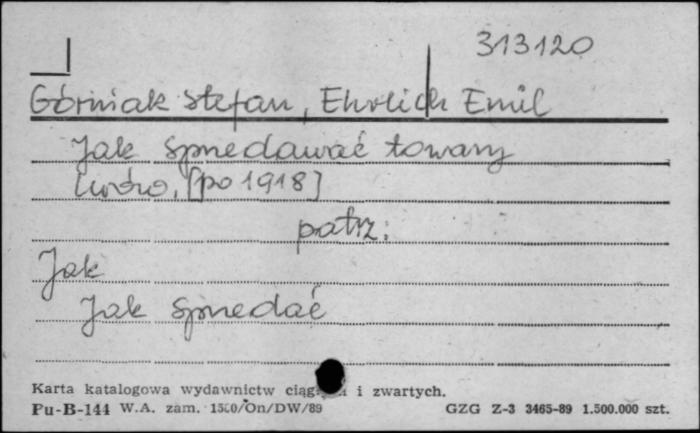 313120
Górniak Stefan, Ehrlich Emil
Jak sprzedawać towary
Lwów, [po 1918]
patrz:
Jak
Jak sprzedać
Karta katalogowa wydawnictw i zwartych.
Pu-B-144 W.A. zam. 1500/On/DW/89 GZG Z-3 3465-89 1.500.000 szt.